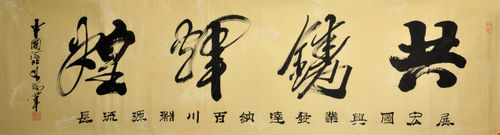 共鑄輝煌
展宏圖興業發達納百川淵源流長
中國